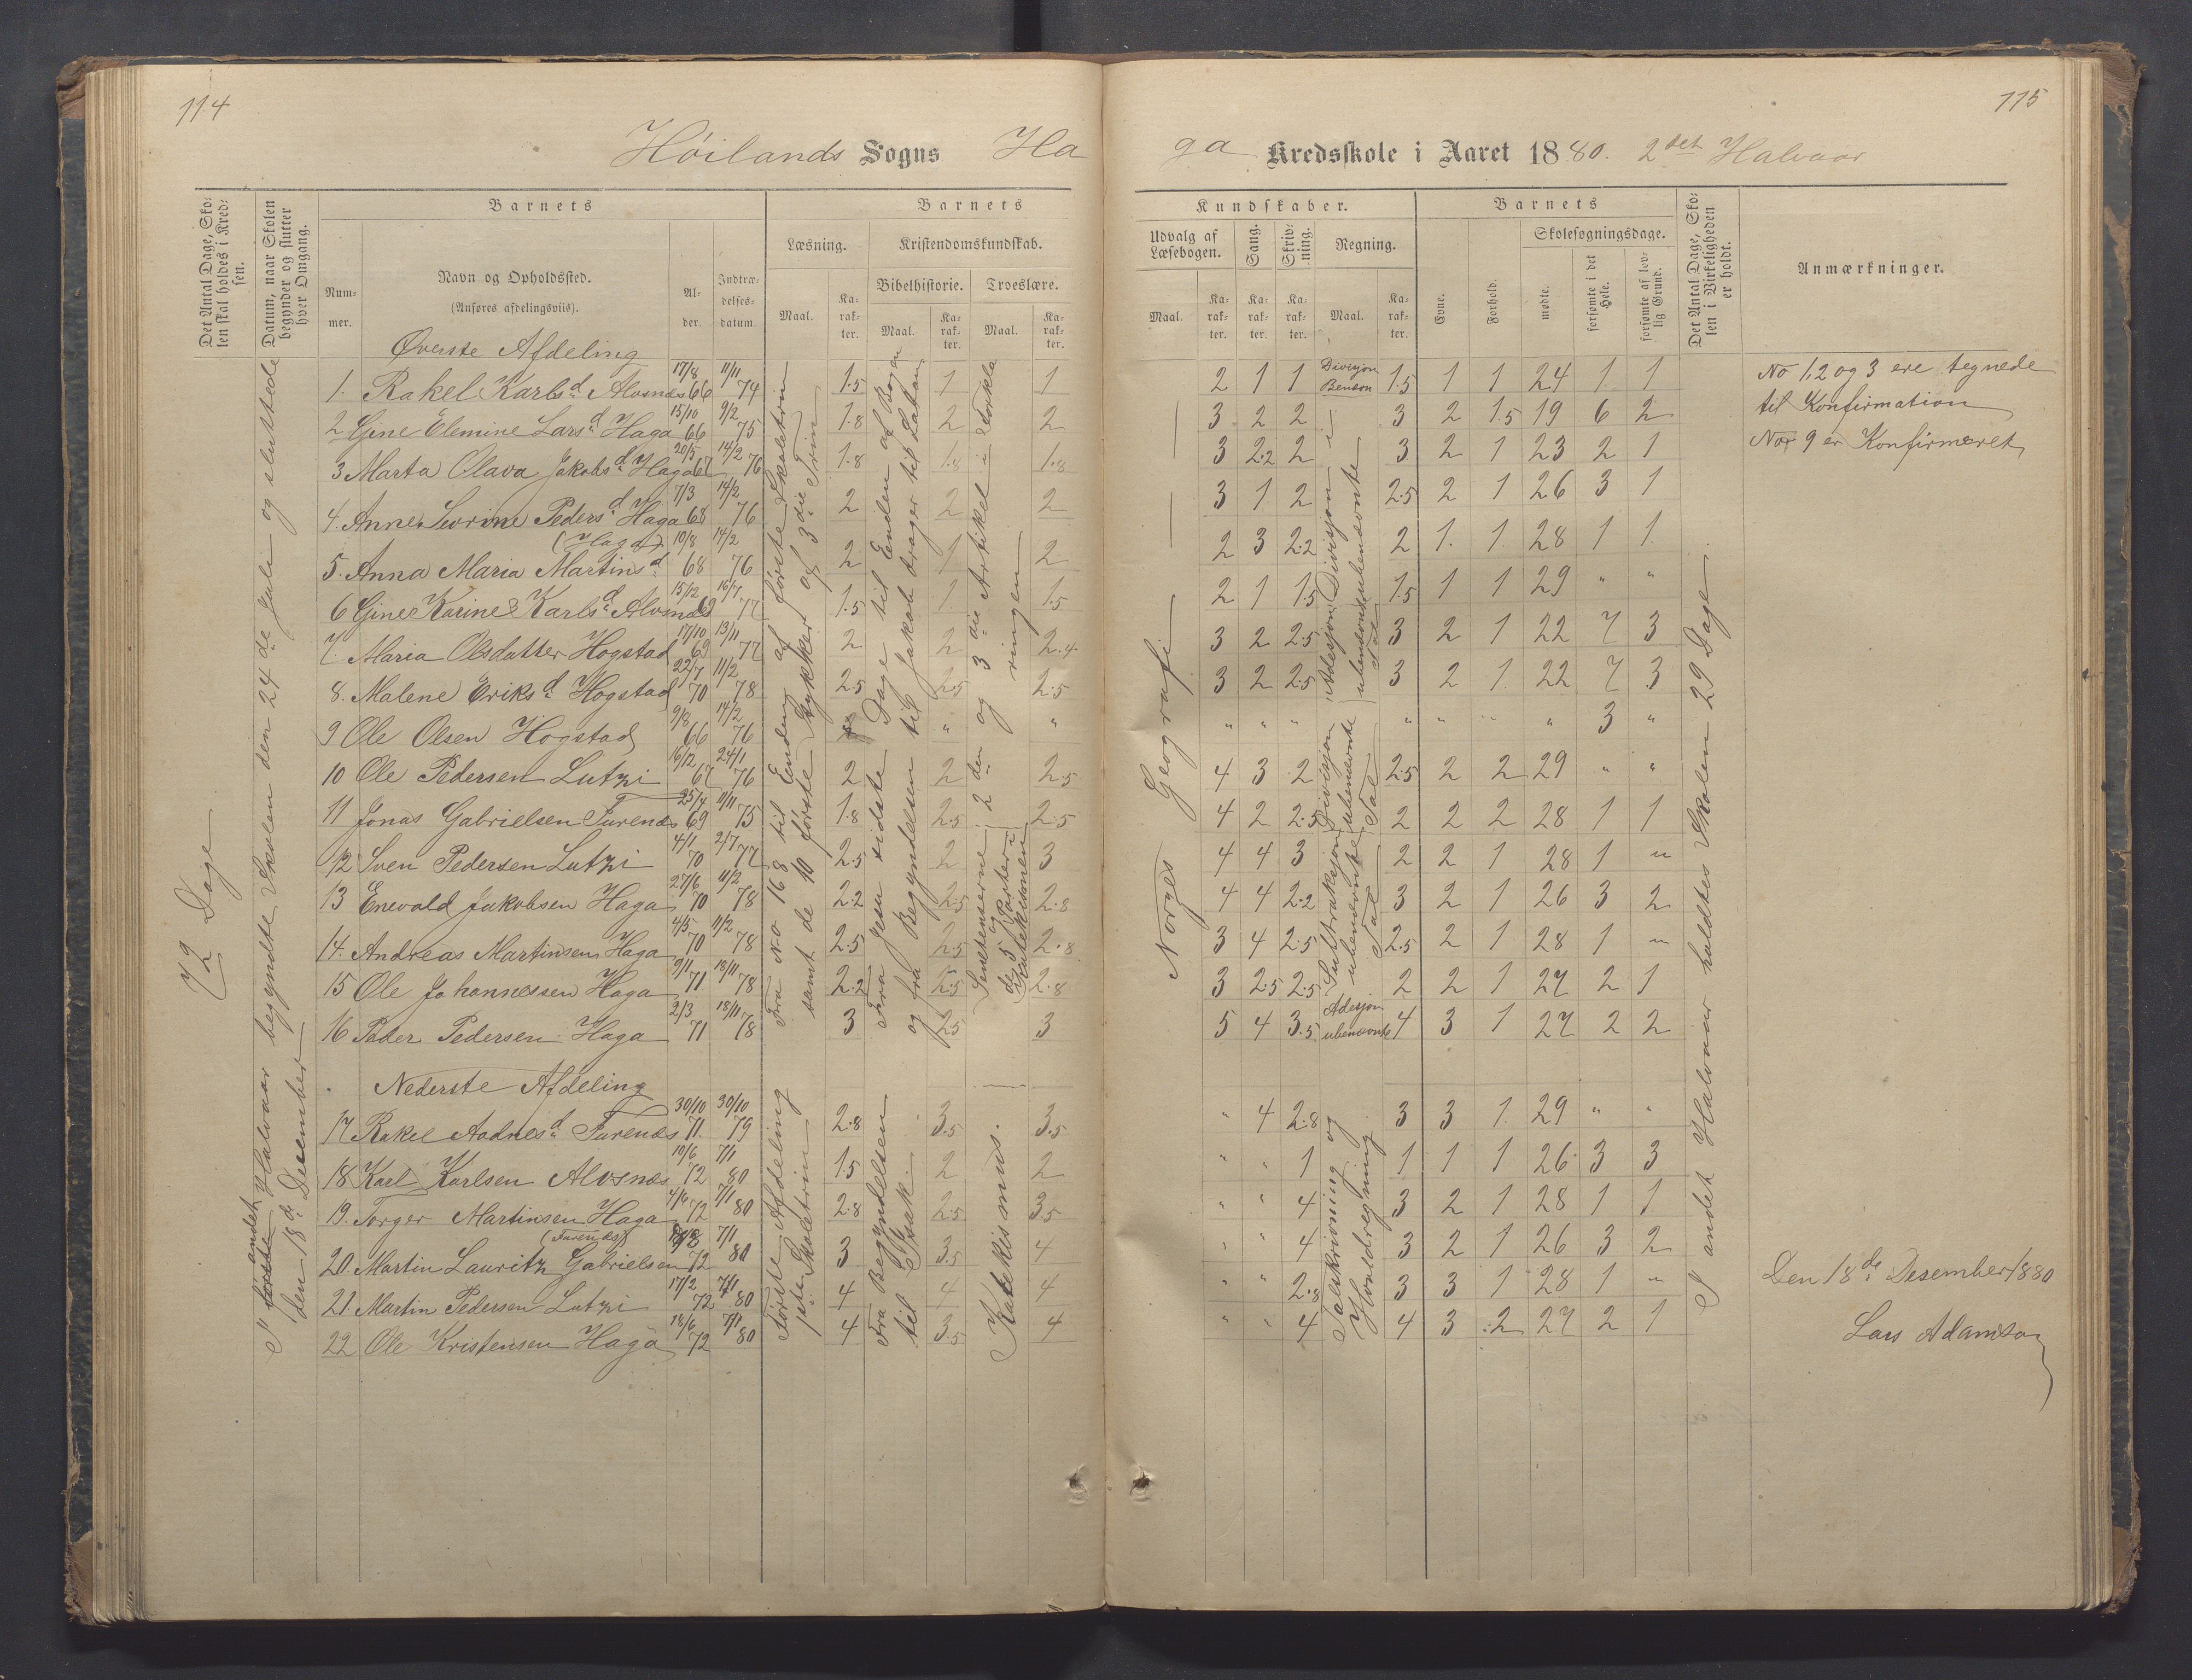 114
Høilands Sogns Ha
Det Antal Dage, Skolen skal holdes i Kredsen.
Datum, naar Skolen begynder og slutter hver Omgang.
Barnets
Barnets
Læsning.
Kristendomskundskab.
Nummer.
Navn og Opholdssted.
(Anføres afdelingsviis).
Alder.
Indtrædelsesdatum.
Maal.
Karakter.
Bibelhistorie.
Troeslære.
Maal.
Karakter.
Maal.
Karakter.
72 Dage
I første andet Halvaar begyndte Skolen den 24de Juli og sluttede
den 18de December
Øverste Afdeling
1. Rakel Karlsd. Alvsnæs 17/8 66 11/11 74 1.5 1 1
2 Gine Elemine Larsd. Haga 15/10 66 9/2 75 1.8 2 2
3 Marta Olava Jakobsd. Haga 20/5 67 14/2 76 1.8 1.8 1.8
4. Anne Severine Pedersd. Haga 7/3 68 14/2 76 2 2 2
(Haga)
5. Anna Maria Martinsd. 10/8 68 14/2 76 2 1 2
6 Gine Karine Karlsd. Alvsnæs 15/12 69 16/7 77 1.5 1 1.5
7. Maria Olsdatter Hogstad 17/10 69 13/11 77 2 2 2.4
8. Malene Eriksd. Hogstad 22/7 70 11/2 78 2.5 2.5 2.5
9 Ole Olsen Hogstad 9/8 66 14/2 76 " "
10 Ole Pedersen Lutzi 16/12 67 24/1 76 2 2 2.5
11 Jonas Gabrielsen Furenæs 25/4 69 11/11 75 1.8 2.5 2.5
12 Sven Pedersen Lutzi 4/1 70 2/7 77 2.5 2 3
13 Enevald Jakobsen Haga 27/6 70 11/2 78 2.2 2.5 2.8
14. Andreas Martinsen Haga 4/5 70 11/2 78 2.5 2.5 2.8
15 Ole Johannessen Haga 9/11 71 18/11 78 2.2 2.5 2.8
16 Peder Pedersen Haga 2/3 71 18/11 78 3 2.5 3
Fra No 168 til Enden af første Skoletrin
samt de 10 første Stykker af 3die Trin
Fra Jesu sidste Dage til Enden af Bogen
og fra Begyndelsen til Jakob drager til Laban
2den og 3die Artikel i Forkla
ringen
Sentenserne i
de 5 Parter i
Katekismen
Nederste Afdeling
17 Rakel Aadnesd. Furenæs 30/10 71. 30/10 79 2.8 3.5 3.5
18 Karl Karlsen Alvsnæs 10/6 72 7/1 80 1.5 2 2
19. Torger Martinsen Haga 4/6 72 7/1 80 2.8 2.5 3.5
(Furenæs)
20. Martin Lauritz Gabrielsen 72 7/1 80 3 3.5 4
21. Martin Pedersen Lutzi 17/2 72 7/1 80 4 4 4
22 Ole Kristensen Haga 18/6 72 7/1 80 4 3.5 4
Første Afdeling
1ste Skoletrin
Fra Begyndelsen
til Isak.
Katekismus.
115
ga Kredsskole i Aaret 1880. 2det Halvaar
Kundskaber.
Barnets
Udvalg af Læsebogen.
Sang.
Skrivning.
Regning.
Maal.
Karakter.
Karakter.
Karakter.
Maal.
Karakter.
Evne.
Forhold.
Skolesøgningsdage.
mødte.
forsømte i det Hele.
forsømte af lovlig Grund.
Det Antal Dage, Skolen i Virkeligheden er holdt.
Anmærkninger.
Norges Geografi
2 1 1 Divisjon Benævn 1.5 1 1 24 1 1
3 2 2 3 2 1.5 19 6 2
3 2.2 2 3 2 1 23 2 1
3 1 2 2.5 2 1 26 3 1
2 3 2.2 2 1. 1. 28 1 1.
2 1 1.5 1.5 1 1 29 " "
3 2 2.5 3 2 1 22 7 3
3 2 2.5 3 2 1. 22 7 3
" " " " " " " 3 "
4 3 2 2.5 2 2 29 " "
4 2 2.5 2 2 2 28 1 1
4 4 3 2 2 1 28 1 "
4 4 2.2 3 2 1 26 3 2
3 4 2.5 2.5 2 1 28 1 "
3 2.5 2.5 2 2 1 27 2 1
5 4 3.5 Adesjon ubenævnte 4 3 1 27 2 2
Divisjon i
ubenævnte
Adesjon
ubenævnte
Tal
Divisjon
ubenævnte
Tal
Suttraksjon
ubenævnte
Tal
" 4 2.8 3 3 1. 29 " "
" " 1 1 1 1 26 3 3
" " 4 3 2 1 28 1 1.
" " 4 3 2 1 26 3 2
" " 2.8 3 3 1 28 1 "
" " 4 4 3 2 27 2 1
Talskrivning og
Hovedregning
I andet Halvaar holdtes Skolen 29 Dage.
No 1, 2 og 3 ere tegnede
til Konfirmation
No 9 er Konfirmeret
Den 18de Desember 1880
Lars Adamson